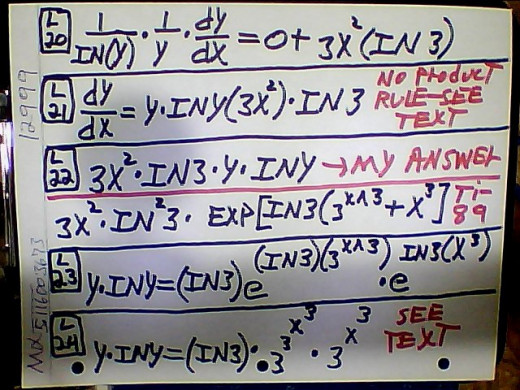 L20 1/IN(Y) · 1/Y · dY/dX = 0 + 3X²(IN3)
L21 dY/dX = Y·INY(3X²)·IN3 NO PRODUCT RULE-SEE TEXT
L22 3X²·IN3·Y·INY → MY ANSWER
3X²·IN²3· EXP[IN3(3^X∧3 + X³] Ti-89
L23 Y·INY=(IN3)e^(IN3)(3^X∧3) ·e^IN3(X³)
L24 Y·INY=(IN3)·3^3^X^3 · 3^X^3 SEE TEXT
12999